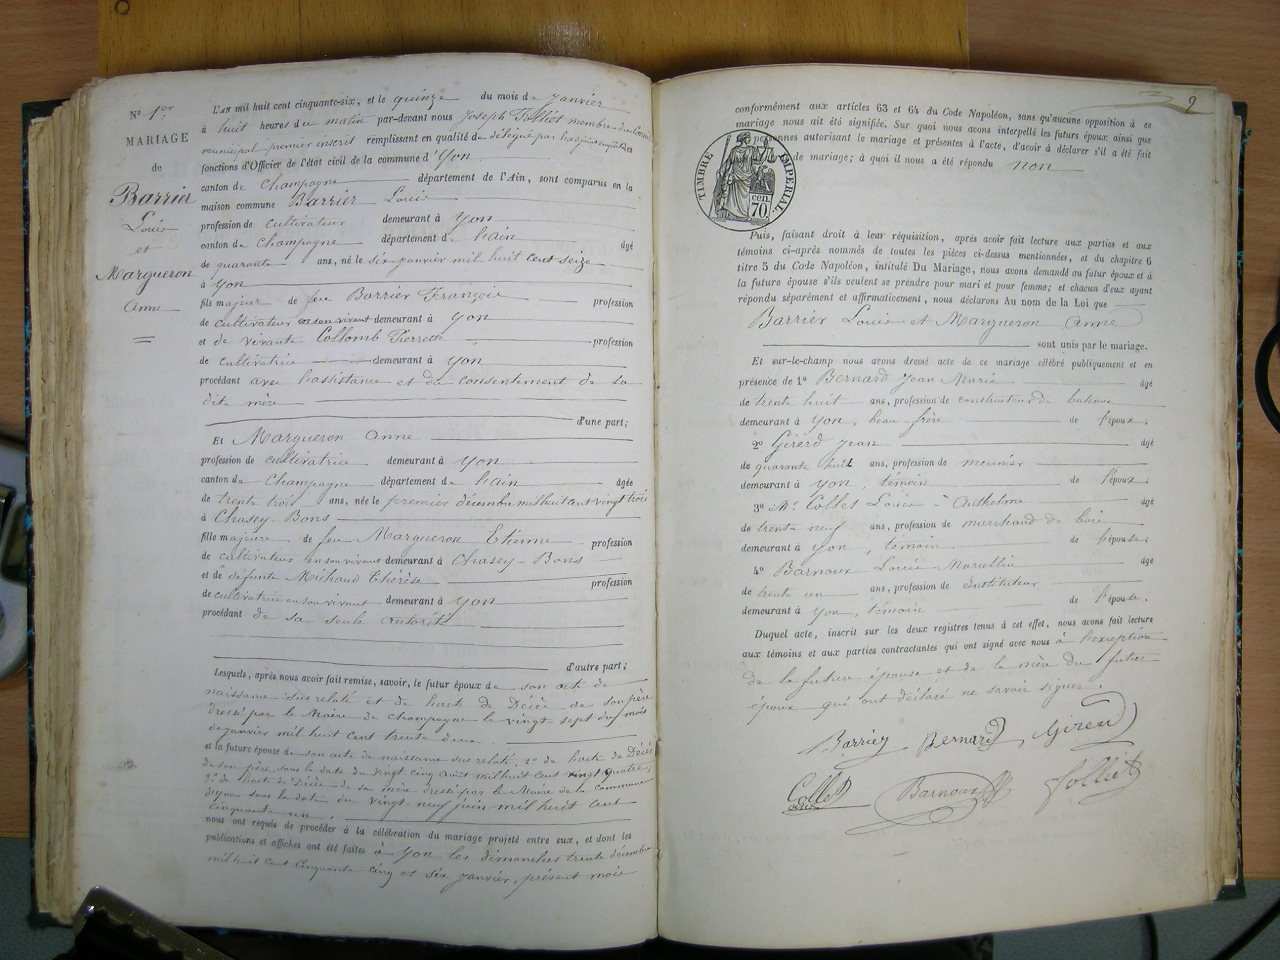 N° 1er
MARIAGE
de
Barrier
Louis
et
Margueron
Anne
L'AN mil huit cent cinquante-six, et le quinze du mois de janvier
à huit heures du matin par-devant nous Joseph Folliet membre du Conseil
municipal premier inscrit remplissant en qualité de délégué par
fonctions d'Officier de l'état civil de la commune d'Yon
canton de Champagne département de l'Ain, sont comparus en la
maison commune Barrier Louis
profession de cultivateur demeurant à Yon
canton de Champagne département de l'ain âgé
de quarante ans, né le six janvier mil huit cent seize
à Yon
fils majeur de feu Barrier François profession
de cultivateur en son vivant demeurant à Yon
et de vivante Collomb Pierrette profession
de cultivatrice demeurant à Yon
procédant avec l'assistance et du consentement de sa
dite mère
d'une part;
Et Margueron Anne
profession de cultivatrice demeurant à Yon
canton de Champagne département de l'ain âgée
de trente trois ans, née le premier décembre mil huit cent vingt trois
à Chasey-Bons
fille majeure de feu Margueron Etienne profession
de cultivateur en son vivant demeurant à Chasey-Bons
et de défunte Michaud Thérèse profession
de cultivatrice en son vivant demeurant à Yon
procédant de sa seule autorité
d'autre part;
Lesquels, après nous avoir fait remise, savoir, le futur époux de son acte de
naissance sus relaté et de l'acte de Décès de son père
dressé par le Maire de Champagne le vingt sept du mois
de janvier mil huit cent trente deux.
et la future épouse de son acte de naissance sus relaté, 2° de l'acte de Décès
de son père sous la date du vingt cinq août mil huit cent vingt quatre,
3° de l'acte de Décès de sa mère dressé par le Maire de la commune
d'yon sous la date du vingt neuf juin mil huit cent
cinquante un.
nous ont requis de procéder à la célébration du mariage projeté entre eux, et dont les
publications et affiches ont été faites à Yon les dimanches trente décembre
mil huit cent cinquante cinq et six janvier, présent mois
2
conformément aux articles 63 et 64 du Code Napoléon, sans qu'aucune opposition à ce
mariage nous ait été signifiée. Sur quoi nous avons interpellé les futurs époux ainsi que
personnes autorisant le mariage et présentes à l'acte, d'avoir à déclarer s'il a été fait
de mariage; à quoi il nous a été répondu non
TIMBRE IMPÉRIAL.
70 cen.
Puis, faisant droit à leur réquisition, après avoir fait lecture aux parties et aux
témoins ci-après nommés de toutes les pièces ci-dessus mentionnées, et du chapitre 6
titre 5 du Code Napoléon, intitulé Du Mariage, nous avons demandé au futur époux et à
la future épouse s'ils veulent se prendre pour mari et pour femme; et chacun d'eux ayant
répondu séparément et affirmativement, nous déclarons Au nom de la Loi que
Barrier Louis et Margueron Anne
sont unis par le mariage.
Et sur-le-champ nous avons dressé acte de ce mariage célébré publiquement et en
présence de 1° Bernard Jean Marie âgé
de trente huit ans, profession de constructeur de bateaux
demeurant à Yon, beau frère de l'époux.
2° Girerd Jean âgé
de quarante huit ans, profession de meunier
demeurant à Yon, témoin de l'époux.
3° Mr Collet Louis Anthelme âgé
de trente neuf ans, profession de marchand de bois
demeurant à Yon, témoin de l'épouse.
4° Barnoux Louis Marcellin âgé
de trente un ans, profession de Instituteur
demeurant à Yon, témoin de l'épouse.
Duquel acte, inscrit sur les deux registres tenus à cet effet, nous avons fait lecture
aux témoins et aux parties contractantes qui ont signé avec nous à l'exception
de la future épouse et de la mère du futur
époux qui ont déclaré ne savoir signer.
Barrier Bernard Girerd
Collet Barnoux Folliet